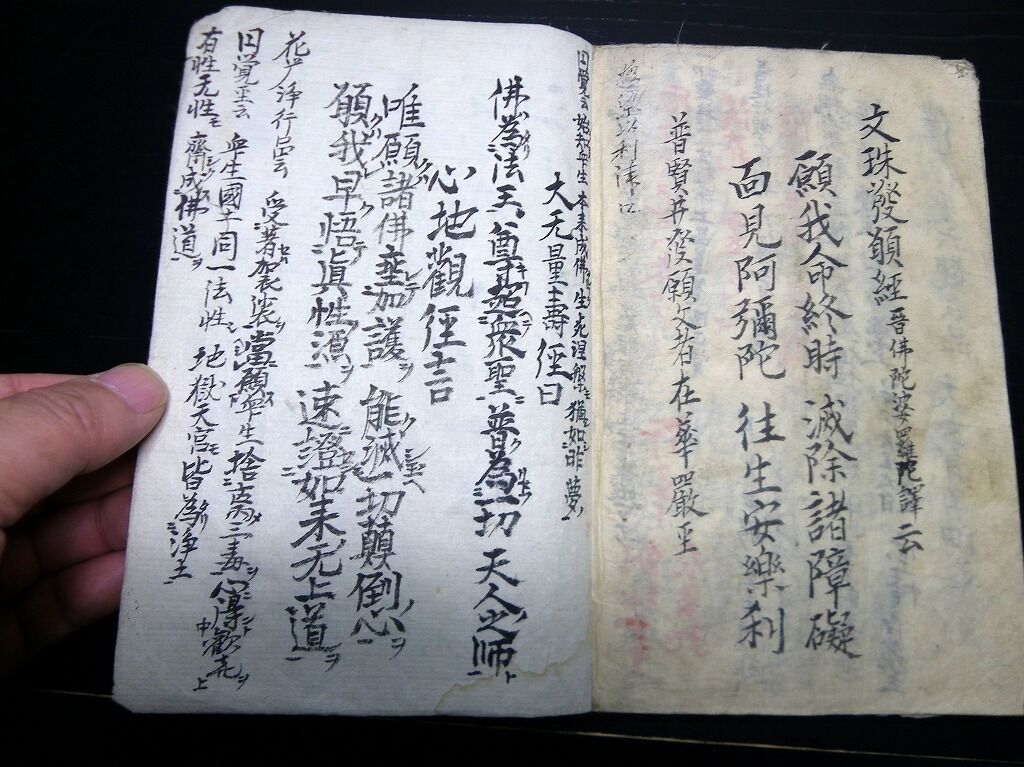 文珠發願經 晋佛陀婆羅陀譯 云
願我命終時 滅除諸障礙
面見阿彌陀 往生安樂利
普賢井發願文者在華嚴至
円覺云 始知众生 本来成佛 生死涅槃 猶如昨夢
大无量壽徑曰
佛為法王 尊超衆聖 普為一切 天人之師
心地觀徑言
唯願諸佛垂加護 能滅一切顛倒心
願我早悟真性源 速證如来无上道
浄行品云 受著袈裟 當願众生 捨离三毒 心得歡喜
円覺至云 众生國土 同一法性 地獄天宮 皆為浄土
有性无性 齊成佛道